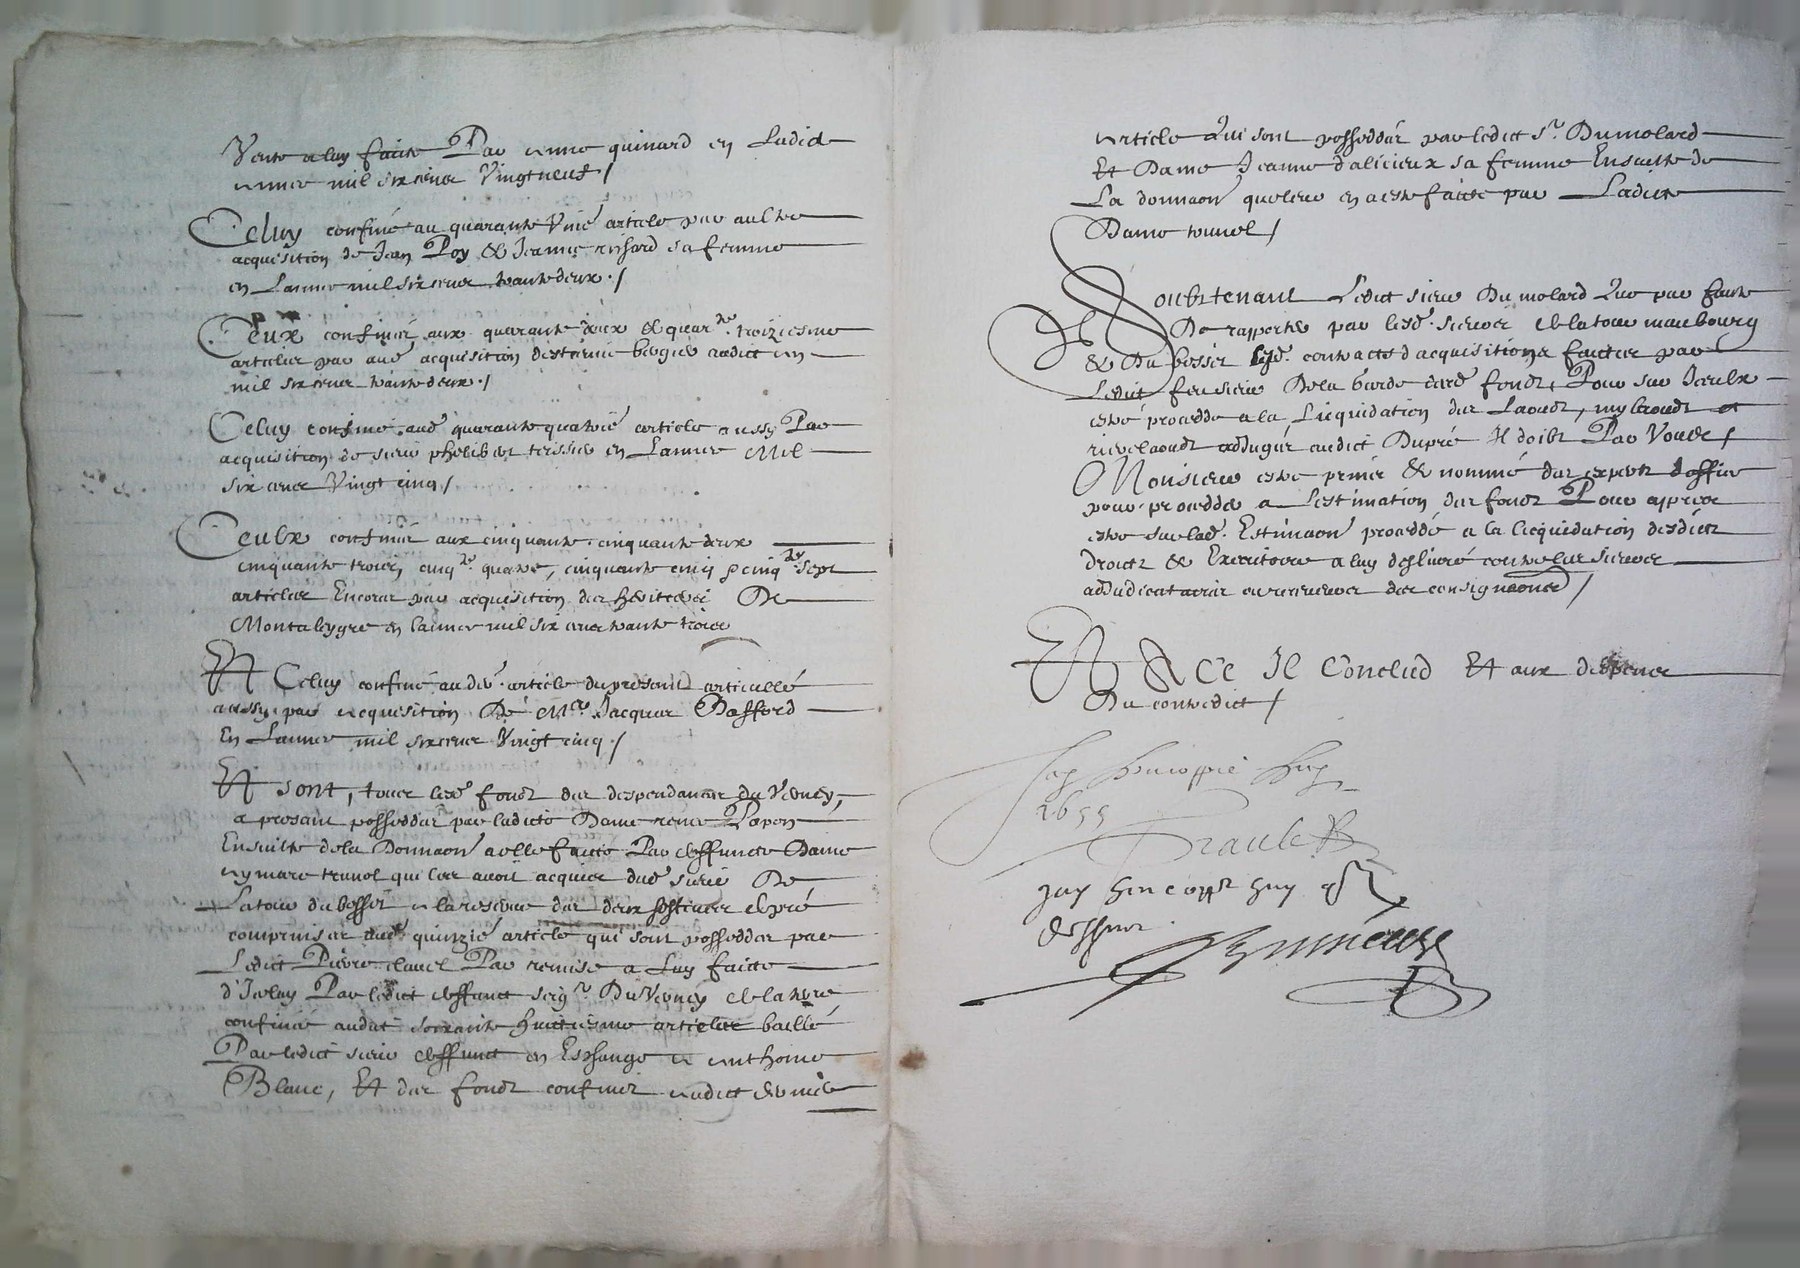 Vente a luy faicte Par anne quinard en Ladicte
annee mil six cens Vingt neuf /
Celuy confiné au quarante Unie article par aultre
acquisition de Jean Roy & Jeanne richard sa femme
en Lannee mil six cens trante deux ./
Ceux confinés aux quarante deux & quarte troiziesme
articles par aue acquisition destienne bergier audict an
mil six cens trante deux ./
Celuy confiné aud quarante quatrie article aussy Par
acquisition de sieur philibert teissier en Lannee Mil
six cens Vingt cinq /
Ceulx confinés aux cinquante . cinquante deux
cinquante troisie, cinqte quatre, cinquante cinq & cinqte sept
articles Encores par acquisition des heritiers De
Montaleygre en lannee mil six cens trante trois
Et Celuy confiné au die article du present articullé
aussy par acquisition De Mre Jacques Dafford
En Lannee mil six cens Vingt cinq ./
Et sont, tous lesd fondz des despendances du Verney,
a present posseddés par ladicte Dame renee Lapon
Ensuitte de la Donnaon a elle faicte Par deffuncte Dame
aymare tournel qui les avoit acquis dud sieur De
Latour du bessei a la reserve des deux & pré
comprins es aud quinzie article qui sont posseddes par
Ledict Pierre clavel Par remise a Luy faicte
d'Iceluy Par ledict deffunct seigr Du Verney & la terre
confinée audict soixante huictiesme article baillé
Par ledict sieur deffunct en Eschange a anthoine
Blanc, Et des fondz confinez audict dernier
article Qui sont posseddés par ledict Sr Dumolard
Et Dame Jeanne d'alicieux sa femme Ensuitte de
La donnaon queleur en a este faicte par Ladicte
Dame tournel /
Soubstenant Ledict sieur Dumolard Que par faute
De rapporter par lesd sieurs de la tour maubourg
& Du bessei lesd contracts d'acquisitions faictes par
Ledict feu sieur De la barde desd fondz, Pour sur Iceulx
estre procedde a la Licquidation des Laoudz, my laoudz et
rierelaoudz adjugés audict Dupré Il doibt Par Vous /
Monsieur estre prins & nommé des expertz doffice
pour proceder a Lestimation des fondz Pour appres
estre sur lad Estimaon procéddé a la licquidation desdicts
droictz & Executoire a luy deslivré contre les sieurs
addudicatairs ou receveur des consignaons /
Et A Ce Il Conclud Et aux despens
Du contredict /
Jay heu coppie huy
1655
Jay heu copp huy